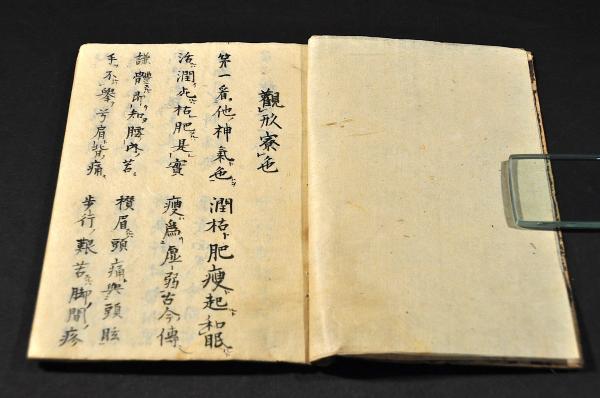 觀形寮色
第一看他神氣色 潤枯肥瘦起和眠
活潤死枯肥是實 瘦爲虛弱古今傳
謙體即知腰內苦 攢眉頭痛與頭眩
手不舉兮肩背痛 步行艱苦脚間疼